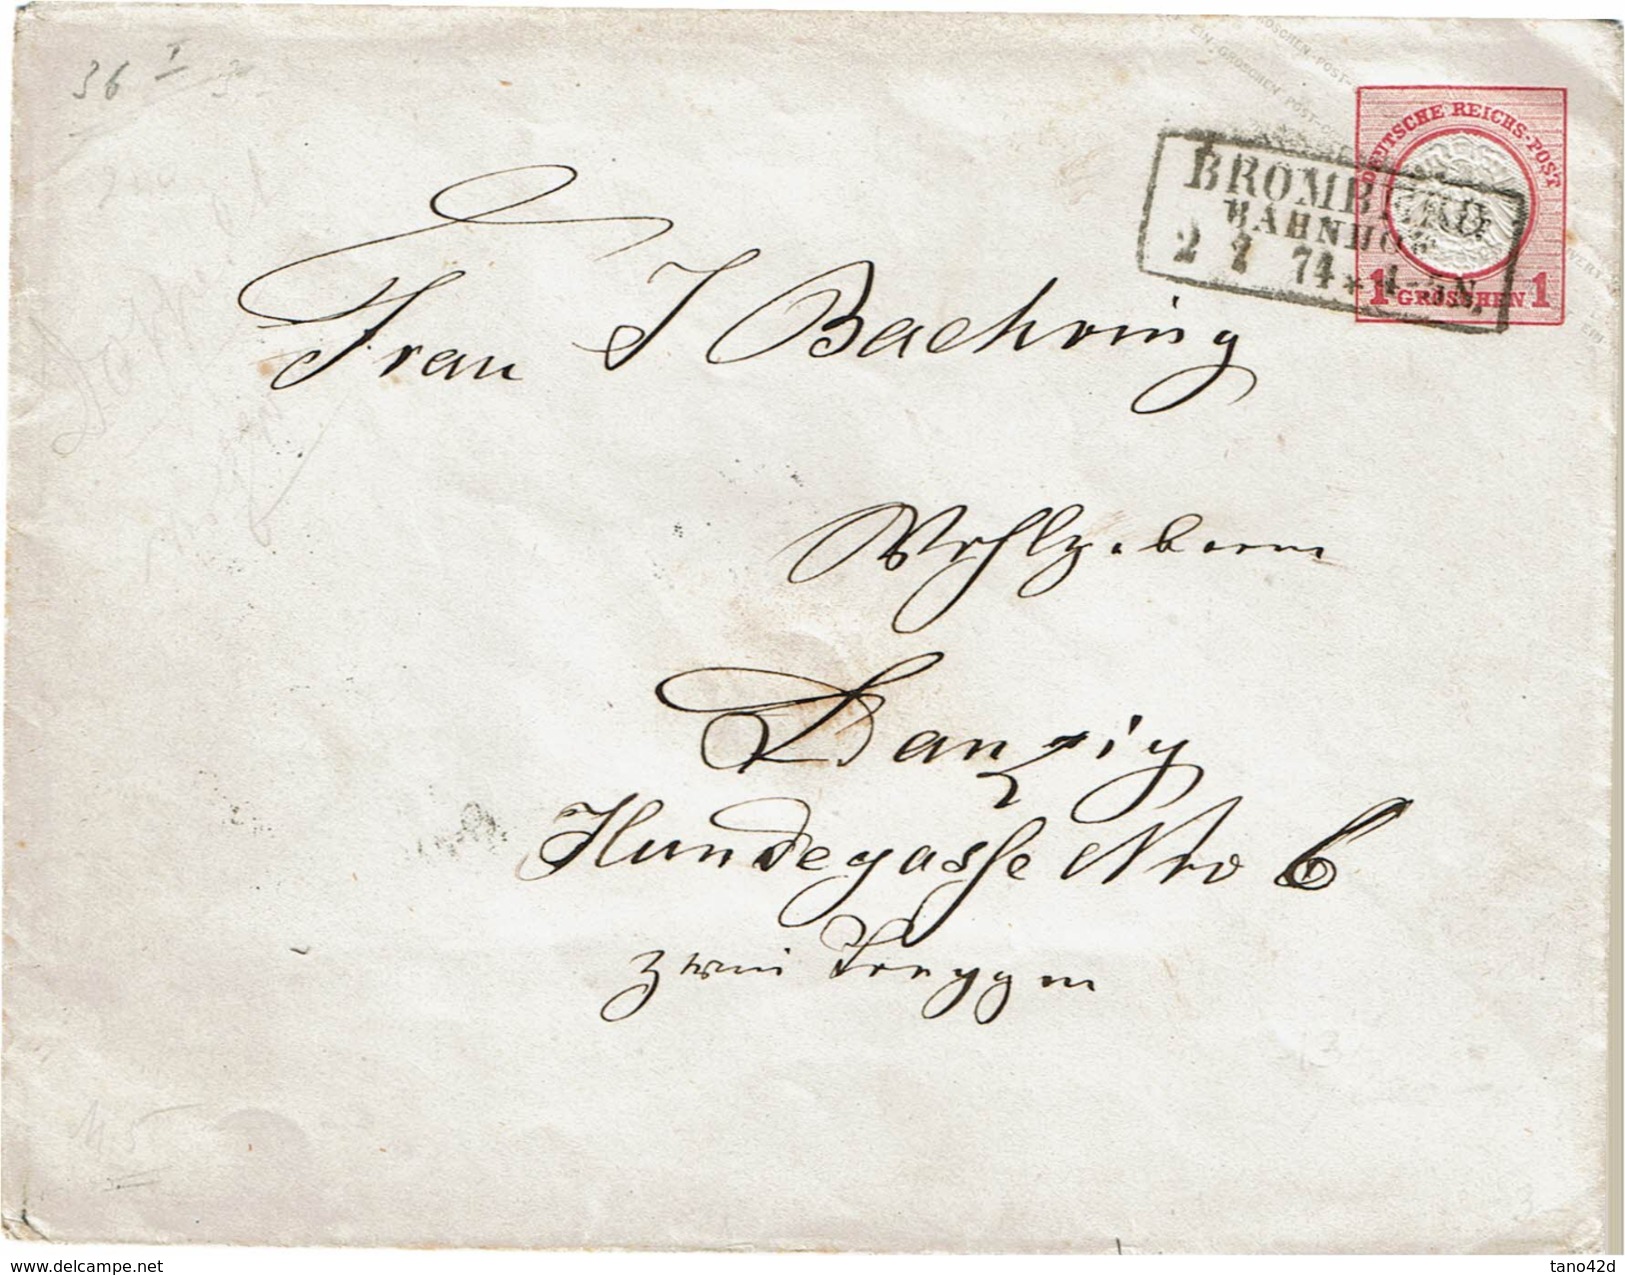 36 I 3
EIN GROSCHEN POST-
DEUTSCHE REICHS-POST
1 GROSCHEN 1
BROMBERG
BAHNHOF
2 7 74 * 4-5N.
Frau J Baehring
Wohlgeboren
Danzig
Hundegasse Nro 6
zwei Treppen
delcampe.net
tano42d